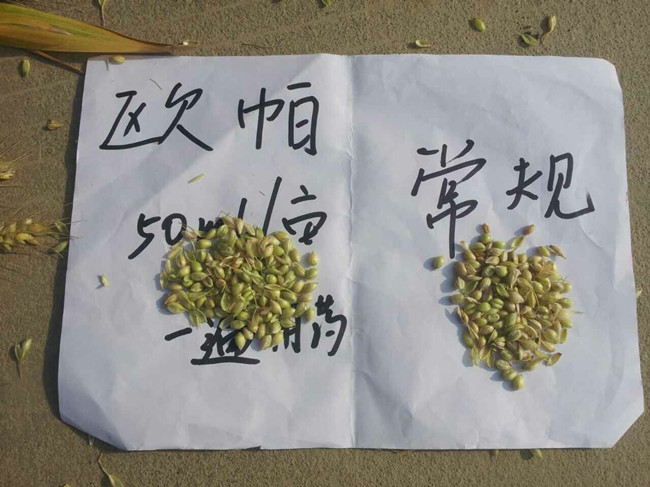 欧帕
50ml/亩
一遍用药
常规